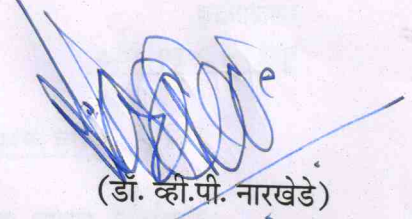 (डॉ. व्ही.पी. नारखेडे)